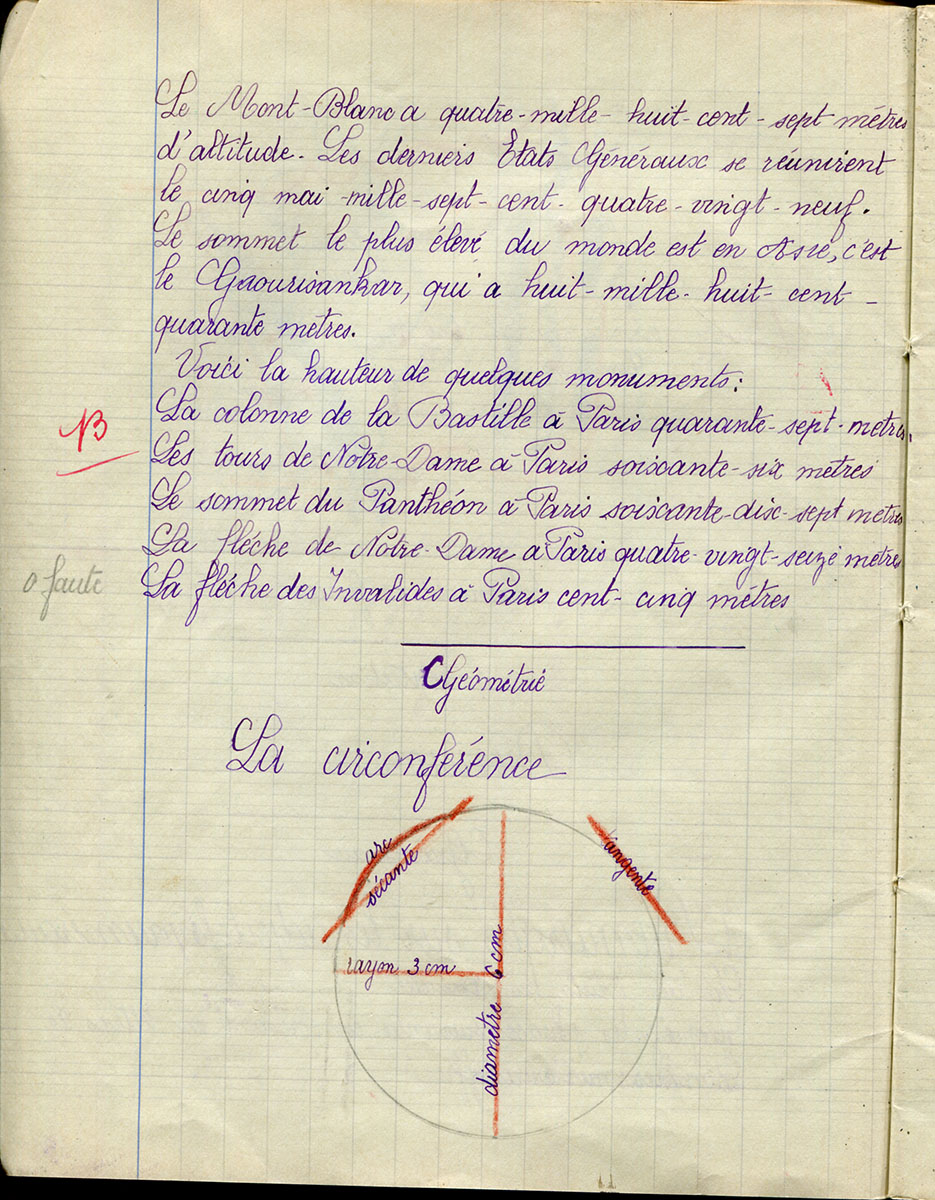 Le Mont-Blanc a quatre-mille-huit-cent-sept mètres
d'altitude. Les derniers Etats Généraux se réunirent
le cinq mai mille-sept-cent-quatre-vingt-neuf.
Le sommet le plus élevé du monde est en Asie, c'est
le Gaourisankar, qui a huit-mille-huit-cent-
quarante mètres.
Voici la hauteur de quelques monuments:
La colonne de la Bastille à Paris quarante-sept-mètres.
Les tours de Notre-Dame à Paris soixante-six mètres
Le sommet du Panthéon à Paris soixante-dix-sept mètres
La flèche de Notre-Dame à Paris quatre-vingt-seize mètres
La flèche des Invalides à Paris cent-cinq mètres
B
0 faute
Géométrie
La circonférence
arc
sécante
tangente
rayon 3 cm
diamètre 6 cm